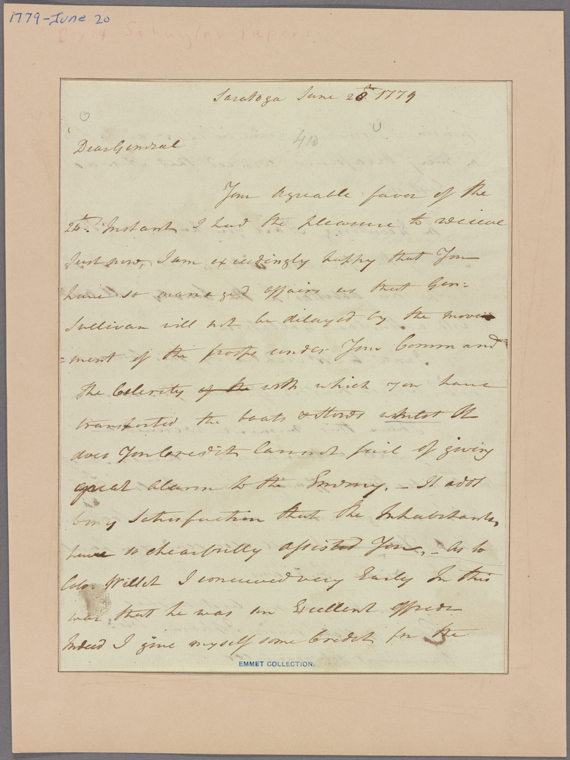 1779-June 20
Box 4 Schuyler Papers
Saratoga June 28th 1779
410
Dear General
Your Agreable favor of the
24th Instant, I had the pleasure to recieve
Just now, I am exceedingly happy that You
have so managed affairs as that Gen:
Sullivan will not be delayed by the move
=ment of the troops under Your Command
the Celerity of the with which you have
transported the boats & Stores whilst It
does You Credit Cannot fail of giving
great Alarm to the Enemy, – It adds
to my Satisfaction that the Inhabitants,
have so chearfully assisted You, – As to
Colo: Willet I conceived very Early In this
war, that he was an Excellent officer
Indeed I give myself some Credit for the
EMMET COLLECTION.